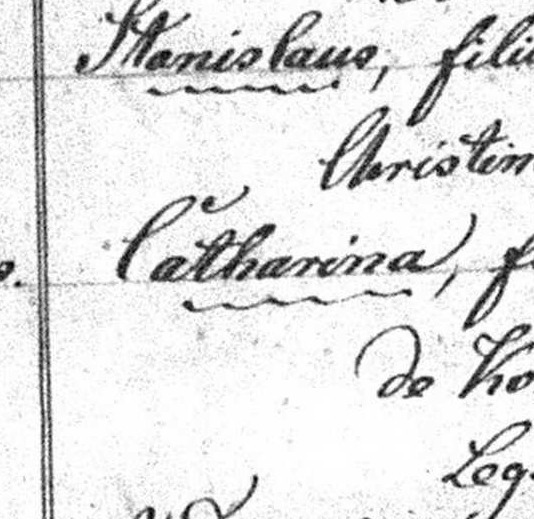 Stanislaus, filiu
Christin
Catharina, f
de Ko
Leg.